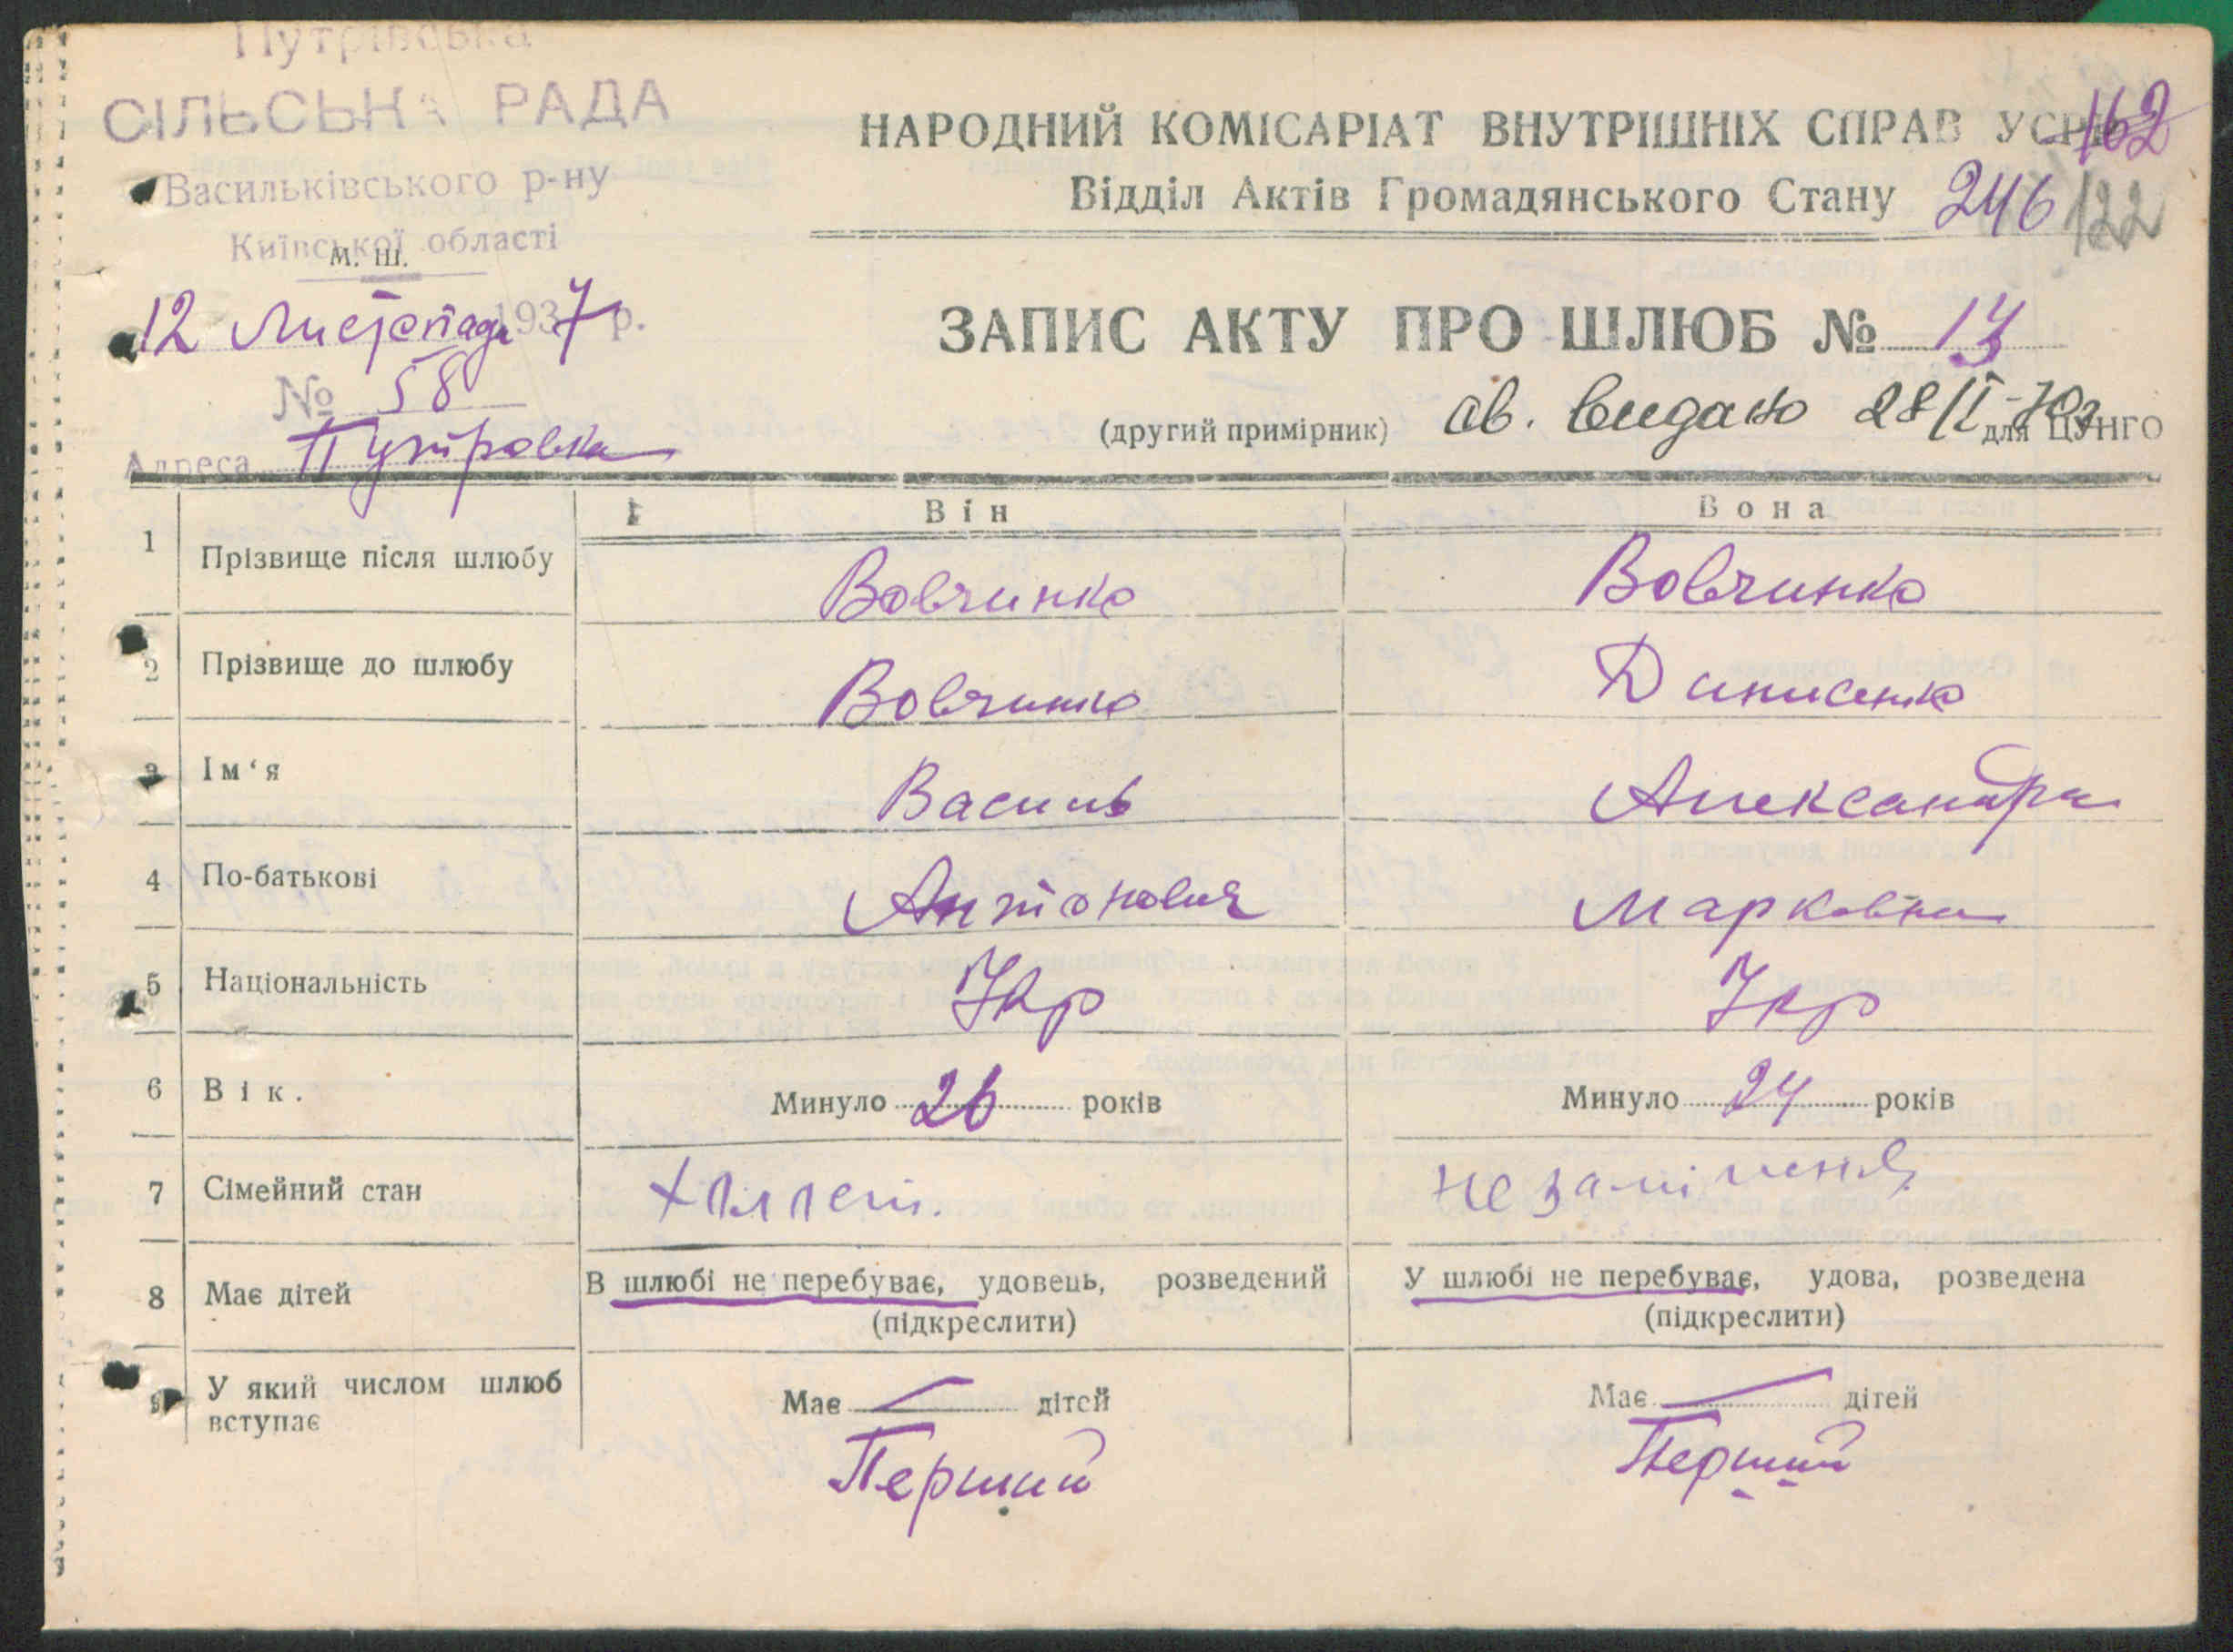 Путрівська
СІЛЬСЬКА РАДА
Васильківського р-ну
Київської області
м. ш.
12 Листопада 1937 р.
№ 58
Адреса Путровка
НАРОДНИЙ КОМІСАРІАТ ВНУТРІШНІХ СПРАВ УСРР
162
Відділ Актів Громадянського Стану 246 122
ЗАПИС АКТУ ПРО ШЛЮБ № 13
(другий примірник) св. видано 28/I-70 для ЦУНГО
Він Вона
1 Прізвище після шлюбу Вовчинко Вовчинко
2 Прізвище до шлюбу Вовчинко Динисенко
3 Ім‘я Василь Александра
4 По-батькові Антонович Марковна
5 Національність Укр Укр
6 Вік. Минуло 26 років Минуло 24 років
7 Сімейний стан незаміжня
8 Має дітей В шлюбі не перебуває, удовець, розведений У шлюбі не перебуває, удова, розведена
(підкреслити) (підкреслити)
9 У який числом шлюб вступає Має — дітей Має — дітей
Перший Перший